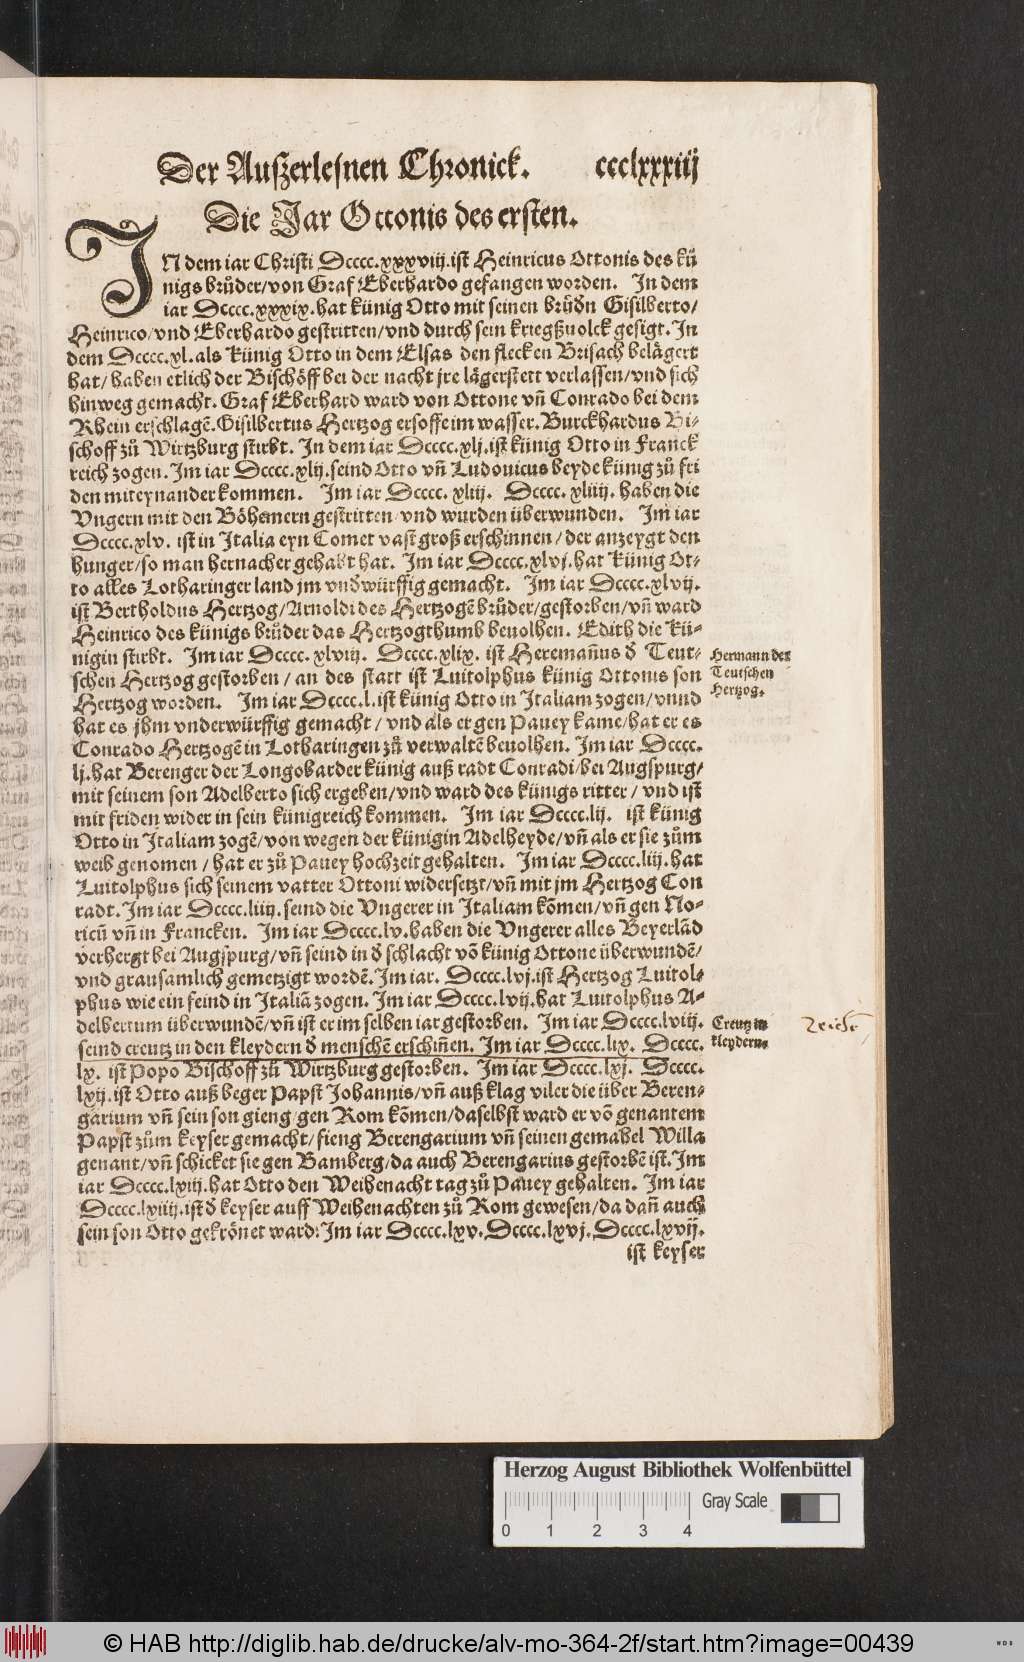 Der Außerlesnen Chronick. ccclxxxiij
Die Jar Ottonis des ersten.
IN dem iar Christi Dcccc.xxxviij.ist Heinricus Ottonis des kü
nigs brůder/von Graf Eberhardo gefangen worden. In dem
iar Dcccc.xxxix.hat künig Otto mit seinen brüďn Gisilberto/
Heinrico/vnd Eberhardo gestritten/vnd durch sein kriegßuolck gesigt. In
dem Dcccc.xl.als künig Otto in dem Elsas den flecken Brisach belägert
hat/haben etlich der Bischöff bei der nacht jre lägerstett verlassen/vnd sich
hinweg gemacht. Graf Eberhard ward von Ottone vñ Conrado bei dem
Rhein erschlagẽ. Gisilbertus Hertzog ersoffe im wasser. Burckhardus Bi-
schoff zů Wirtzburg stirbt. In dem iar Dcccc.xlj.ist künig Otto in Franck
reich zogen. Im iar Dcccc.xlij.seind Otto vñ Ludouicus beyde künig zů fri
den miteynander kommen. Im iar Dcccc. xliij. Dcccc. xliiij. haben die
Vngern mit den Böhemern gestritten/vnd wurden überwunden. Im iar
Dcccc.xlv. ist in Italia eyn Comet vast groß erschinnen/der anzeygt den
hunger/so man hernacher gehabt hat. Im iar Dcccc.xlvj.hat künig Ot-
to alles Lotharinger land jm vnďwürffig gemacht. Im iar Dcccc.xlvij.
ist Bertholdus Hertzog/Arnoldi des Hertzogẽ brůder/gestorben/vñ ward
Heinrico des künigs brůder das Hertzogthumb beuolhen. Edith die kü-
nigin stirbt. Im iar Dcccc. xlviij. Dcccc.xlix. ist Heremañus ď Teut-
schen Hertzog gestorben/an des statt ist Luitolphus künig Ottonis son
Hertzog worden. Im iar Dcccc.l.ist künig Otto in Italiam zogen/vnnd
hat es jhm vnderwürffig gemacht/vnd als er gen Pauey kame/hat er es
Conrado Hertzogẽ in Lotharingen zů verwaltẽ beuolhen. Im iar Dcccc.
lj.hat Berenger der Longobarder künig auß radt Conradi/bei Augspurg/
mit seinem son Adelberto sich ergeben/vnd ward des künigs ritter/vnd ist
mit friden wider in sein künigreich kommen. Im iar Dcccc.lij. ist künig
Otto in Italiam zogẽ/von wegen der künigin Adelheyde/vñ als er sie zům
weib genomen/hat er zů Pauey hochzeit gehalten. Im iar Dcccc.liij.hat
Luitolphus sich seinem vatter Ottoni widersetzt/vñ mit jm Hertzog Con
radt. Im iar Dcccc.liiij.seind die Vngerer in Italiam kõmen/vñ gen No-
ricũ vñ in Francken. Im iar Dcccc.lv.haben die Vngerer alles Beyerlãd
verhergt bei Augspurg/vñ seind in ď schlacht võ künig Ottone überwundẽ/
vnd grausamlich gemetzigt wordẽ. Im iar. Dcccc.lvj.ist Hertzog Luitol-
phus wie ein feind in Italiã zogen. Im iar Dcccc.lvij.hat Luitolphus A-
delbertum überwundẽ/vñ ist er im selben iar gestorben. Im iar Dcccc.lviij.
seind creutz in den kleydern ď menschẽ erschiñen. Im iar Dcccc.lix. Dcccc.
lx. ist Popo Bischoff zů Wirtzburg gestorben. Im iar Dcccc.lxj. Dcccc.
lxij.ist Otto auß beger Papst Johannis/vñ auß klag viler die über Beren-
garium vñ sein son gieng/gen Rom kõmen/daselbst ward er võ genantem
Papst zům keyser gemacht/fieng Berengarium vñ seinen gemahel Willa
genant/vñ schicket sie gen Bamberg/da auch Berengarius gestorbẽ ist. Im
iar Dcccc.lxiij.hat Otto den Weihenacht tag zů Pauey gehalten. Im iar
Dcccc.lxiiij.ist ď keyser auff Weihenachten zů Rom gewesen/da dañ auch
sein son Otto gekrönet ward. Im iar Dcccc.lxv. Dcccc.lxvj. Dcccc.lxvij.
ist keyser
Hermann der
Teutschen
Hertzog.
Creutz in
kleydern.
Herzog August Bibliothek Wolfenbüttel
Gray Scale
0 1 2 3 4
© HAB http://diglib.hab.de/drucke/alv-mo-364-2f/start.htm?image=00439